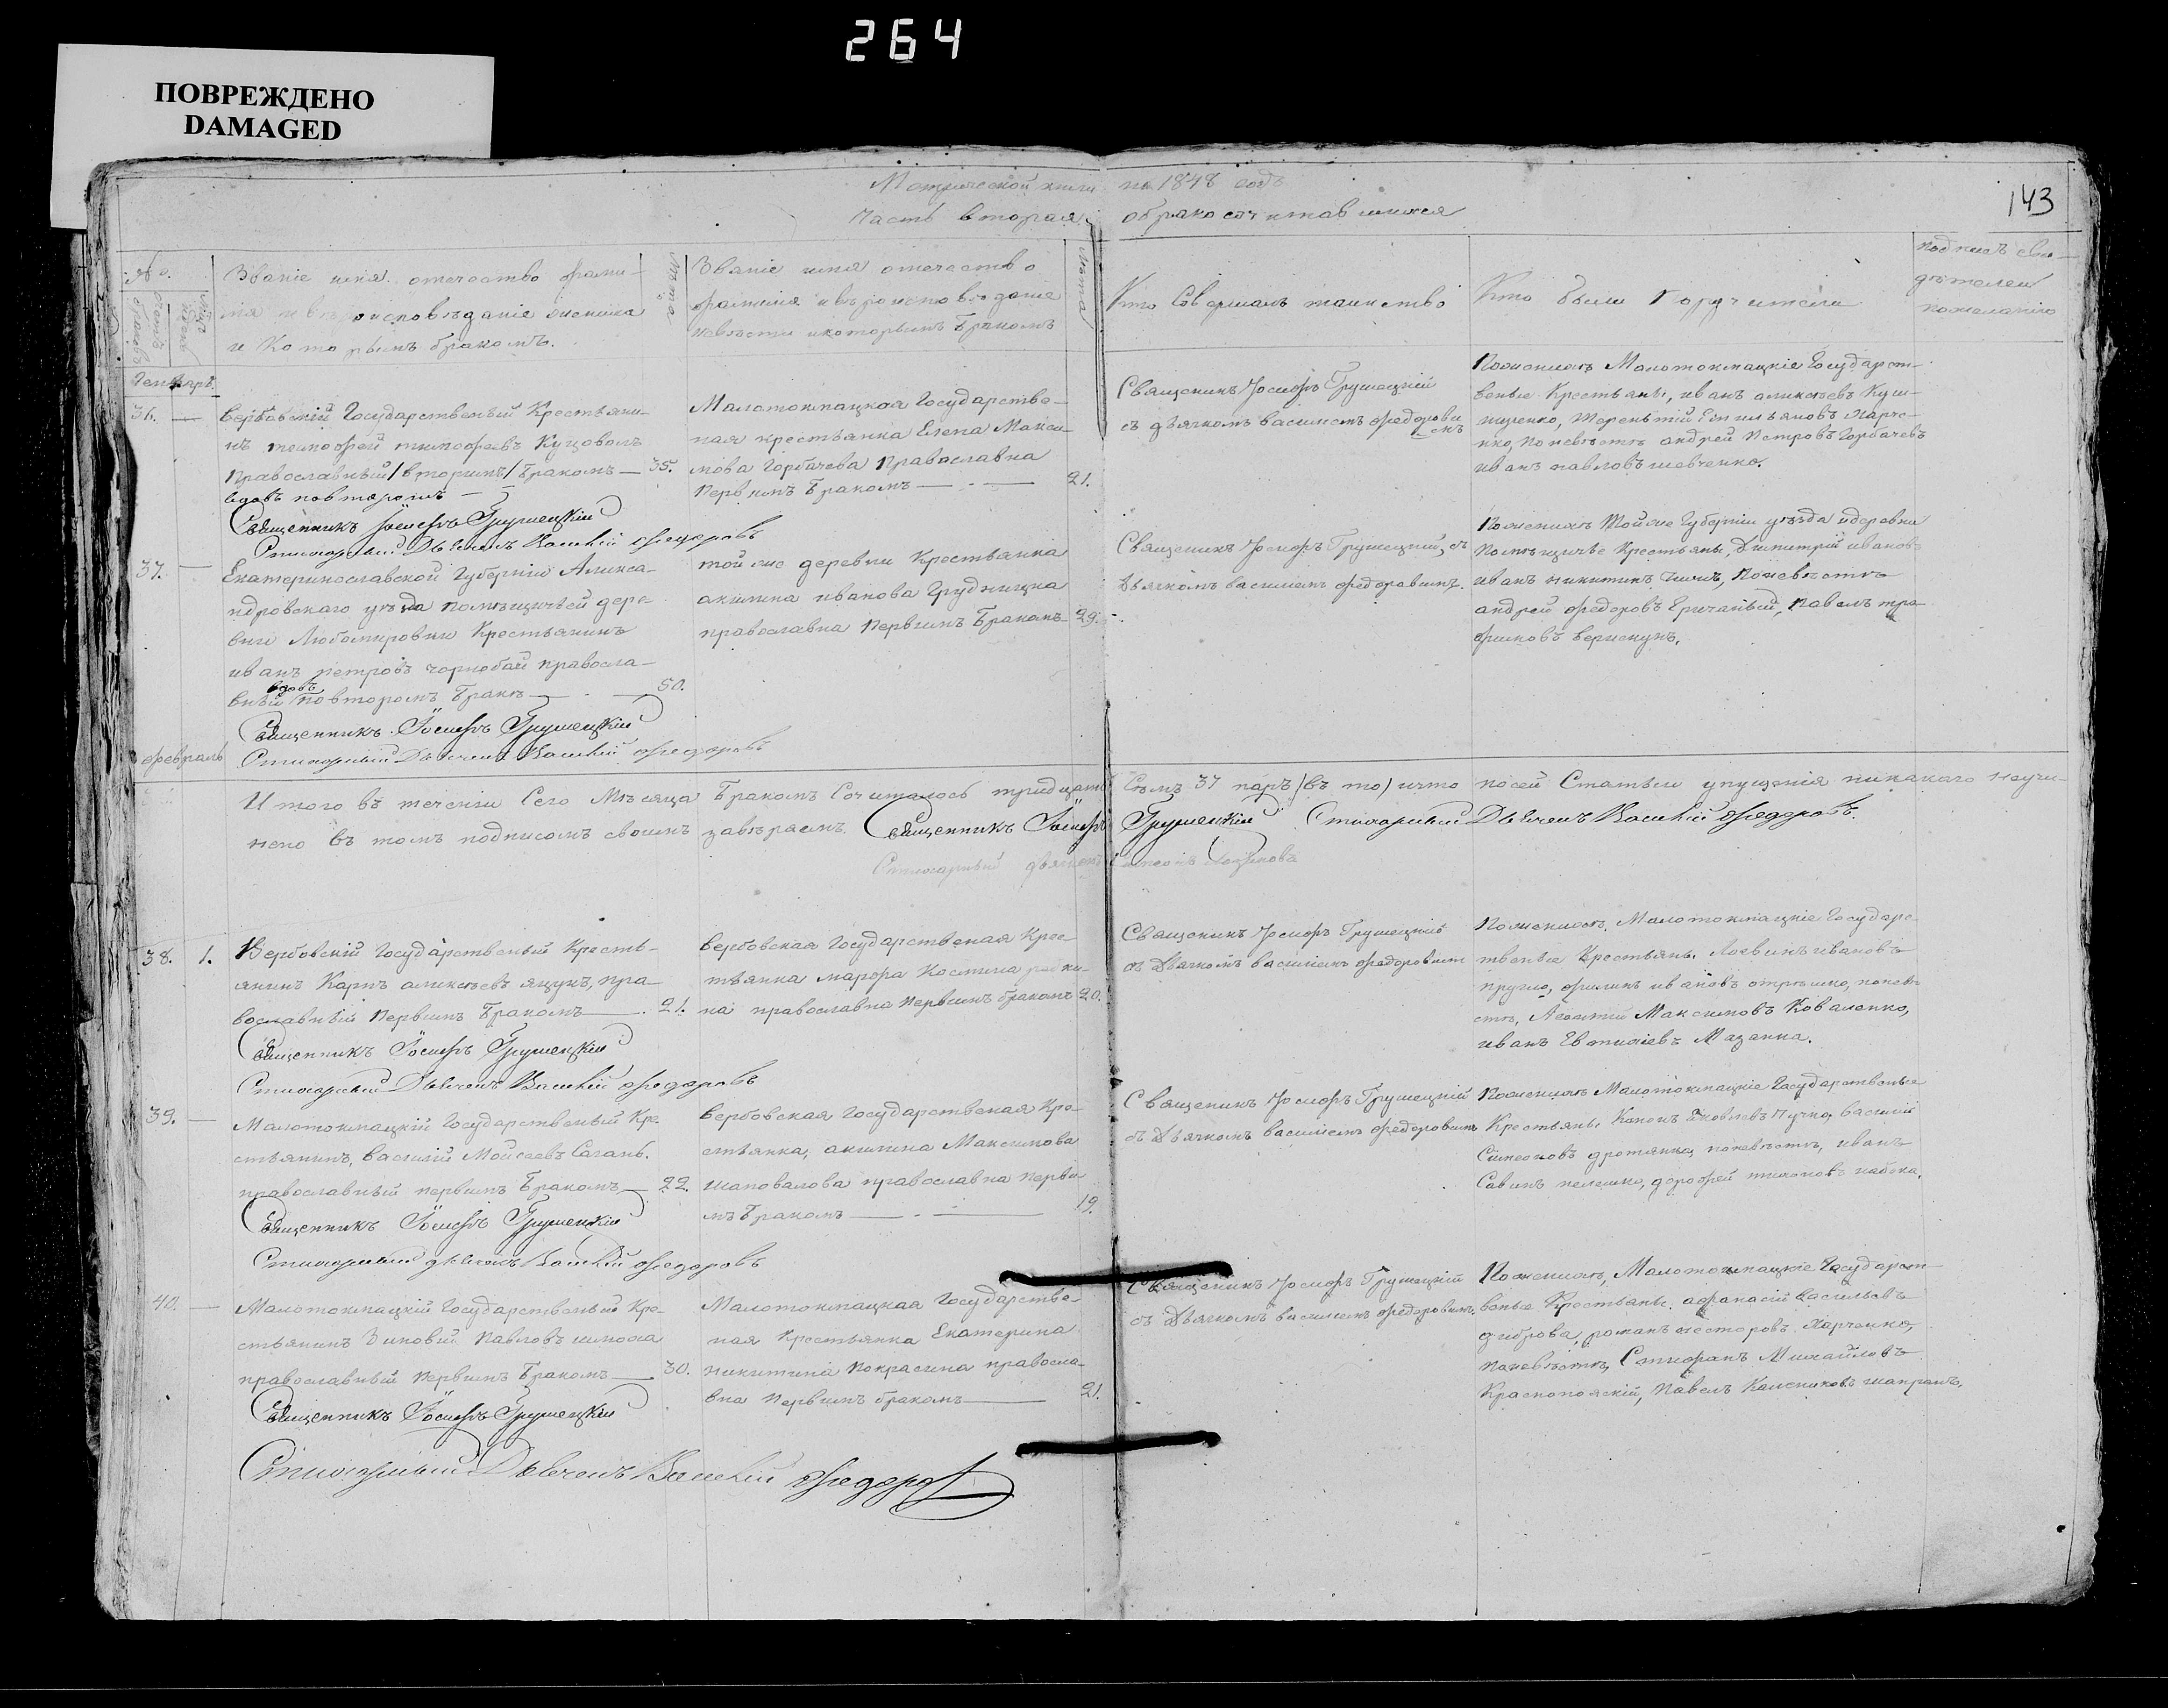 264
ПОВРЕЖДЕНО
DAMAGED
143
Метрической книги на 1848 годъ
Часть вторая, о бракосочитавшихся
№
Званіе имя отечество фами-
лія и вѣроисповѣданіе жениха
и Которымъ бракомъ.
Лѣта
Званіе имя отечество
фамилія и вѣроисповѣданіе
невѣсти икоторымъ Бракомъ
Лѣта
Кто Совершалъ таинство
Кто были Поручители
подписъ сви-
дѣтелей
пожеланію
Генваръ
36. —
Вербовскій Государственый Крестьяни-
нъ тимофей тимофеевъ Куцоволъ
Православный /вторимъ/ Бракомъ — 35.
вдовъ повторомъ
Священникъ Іосифъ Грушецкій
Стихарный Дьячекъ Василій Федоровъ
Малотокмацкая Государстве-
ная крестьянка Елена Макси-
мова Горбачева Православна
Первимъ Бракомъ — 21.
Священикъ Іосифъ Грушецкій
съ дьячкомъ василемъ федорови
Поженихъ Малотокмацкіе Государст-
веные Крестьяне, иванъ аликсѣевъ Куш-
нѣренко, Терентій Емильяновъ Харче-
нко, поневѣстѣ андрей Петровъ Горбачевъ
иванъ павловъ шевченко.
37. —
Екатеринославской Губерніи Алекса-
ндровскаго уѣзда помѣщичьей дере-
вни Любомировки Крестьянинъ
иванъ петровъ чорнобай правосла-
вный вдовъ повторомъ Бракѣ — 50.
Священникъ Іосифъ Грушецкій
Стихарный Дьячекъ Василій Федоровъ
той же деревни Крестьянка
акилина иванова Грудницка
православна Первимъ Бракомъ — 29.
Священикъ Іосифъ Грушецкій, съ
Дьячкомъ василиемъ федоровимъ.
Поженихъ Той же Губерніи уѣзда идеревни
Помѣщичье Крестьяне, Димитрій ивановъ
иванъ никитинъ поневѣстѣ
андрей федоровъ павелъ тро-
фимовъ
февраль
Итого въ теченіи Сего Мѣсяца Бракомъ Сочиталось тридцать Семъ 37 паръ (въ то) ичто посей Статьѣи упущенія никакаго неучи-
нено въ томъ подписомъ своимъ завѣраемъ. Священникъ Іосифъ Грушецкій Стихарный Дьячекъ Василій Федоровъ.
Стихарный дьячекъ
38. 1.
Вербовскій Государственый Кресть-
янинъ Карпъ аликсѣевъ яцунъ, пра-
вославный Первимъ Бракомъ — 21.
Священникъ Іосифъ Грушецкій
Стихарный Дьячекъ Василій Федоровъ
Вербовская Государственая Крес-
тьянка марфа Костина
на православна Первимъ бракомъ 20.
Священикъ Іосифъ Грушецкій
съ Дьячкомъ василиемъ федоровимъ
Поженихѣ, Малотокмацкіе Государс-
твеные Крестьяне. ивановъ
пругло, филипъ ивановъ поневѣ-
стѣ, Максимовъ Коваленко,
иванъ Евтихіевъ Мазанка.
39. —
Малотокмацкій Государственый Кре-
стьянинъ, василій Мойсѣевъ Сагань.
православный первимъ Бракомъ — 22.
Священникъ Іосифъ Грушецкій
Стихарный дьячекъ Василій Федоровъ
Вербовская Государственая Кре-
стьянка, акилина Максимова
шаповалова православна перви
мъ Бракомъ — 19.
Священикъ Іосифъ Грушецкій
съ Дьячкомъ василиемъ федоровимъ
Поженихъ Малотокмацкіе Государственые
Крестьяне Кононъ Яковлевъ Пучко, василій
Симеоновъ дротянко, поневѣстѣ, иванъ
Савинъ пелешко, дорофей тихоновъ набока.
40. —
Малотокмацкій Государственый Кре-
стьянинъ Зиновій Павловъ
православный Первимъ Бракомъ — 30.
Священникъ Іосифъ Грушецкій
Стихарный Дьячекъ Василій Федоровъ
Малотокмацкая Государстве-
ная Крестьянка Екатерина
никитина Покрасина правосла-
вна Первимъ бракомъ — 21.
Священикъ Іосифъ Грушецкій
съ Дьячкомъ василиемъ федоровимъ.
Поженихъ, Малотокмацкіе Государст-
веные Крестьяне. афанасій васильевъ
диброва, романъ нестеровъ Харченко,
поневѣстѣ, Стифанъ Михайловъ
Краснопояскій, Павелъ Калениковъ шапранъ.